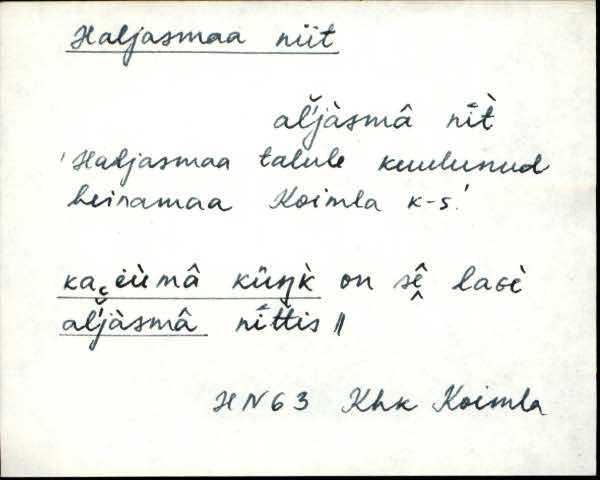 Haljasmaa niit
al̆'jàsmâ nī̀t
'Haljasmaa talule kuulunud
heinamaa Koimla k-s.'
küŋ̀k on sê laGè
al̆'jàsmâ nīttis ‖
HN 63 Khk Koimla